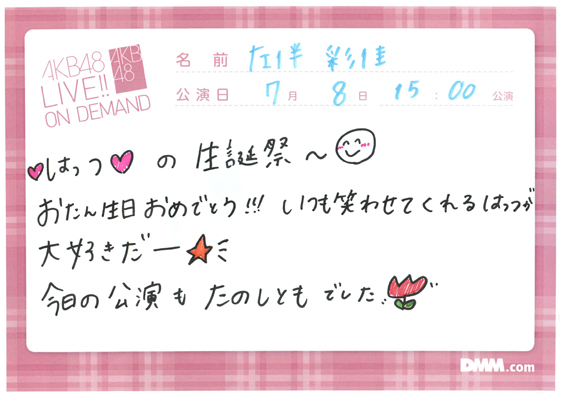 AKB48
LIVE!!
ON DEMAND
AKB
48
名前 左伴 彩佳
公演日 7月 8日 15:00 公演
はっつ の 生誕祭〜
おたん生日おめでとう!!! いつも笑わせてくれるはっつが
大好きだー
今日の公演も たのしともでした.
DMM.com